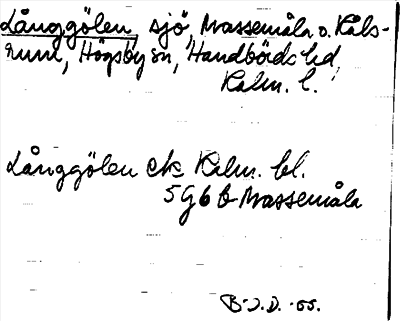 Långgölen, sjö, Massemåla o. Kåls-
rum, Högsby sn, Handbörds hd,
Kalm. l.
Långgölen ek Kalm. bl.
5 G 6 b Massemåla
B-J.D. -55.